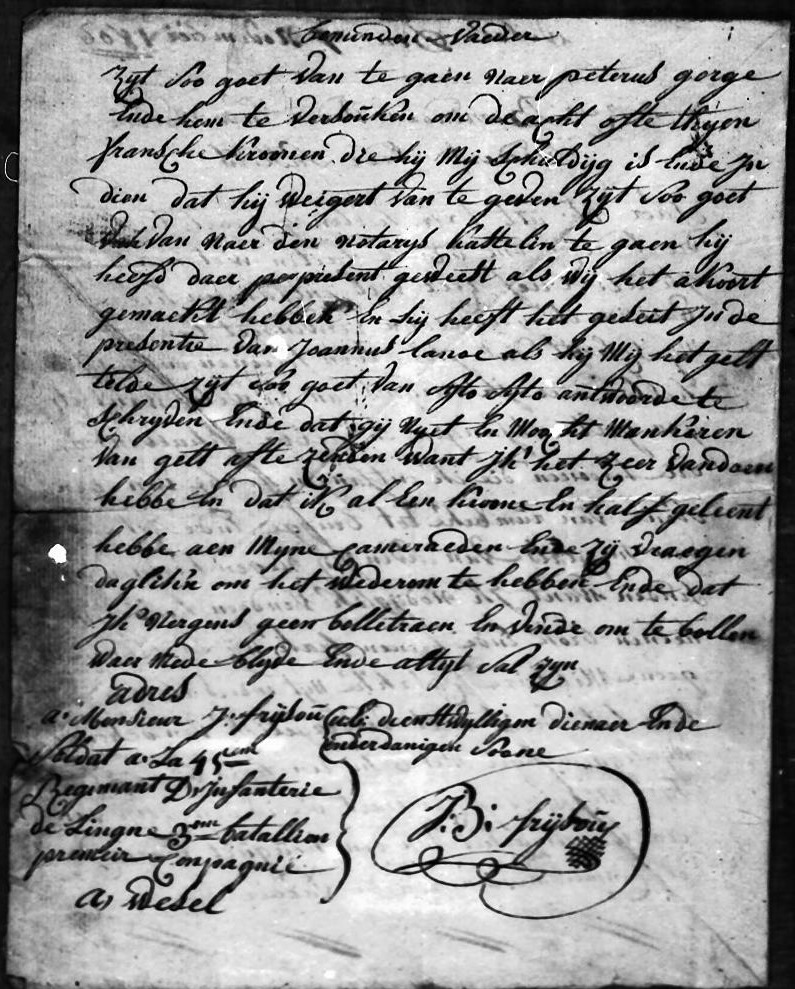 beminden Vaeder
Zijt soo goet van te gaen naer peterus gorge
Ende hem te versouken om de acht ofte thijen
fransche kroonen die hij mij schuldijg is Ende jn
dien dat hij weigert van te geven zijt soo goet
van naer den notarijs kattelin te gaen hij
heefd daer present geweest als wij het akoort
gemaekt hebben En hij heeft het gedeit jn de
presentie van joannus lanoe als hij mij het gelt
telde zijt soo goet van Ato Ato antwoorde te
schrijven Ende dat gij niet En moogt mankeren
van gelt ofte zenden want jk het zeer vandoen
hebbe En dat ik al Een kroone En half geleent
hebbe aen mijne cameraeden Ende zij vraegen
daglikx om het wederom te hebben Ende dat
jk nergens geen bolletraen En vinde om te bollen
waer mede blyde Ende altijt sal zijn
adres
a Monsieur J. frijbou UE: dienstwylligen dienaer Ende
Soldat a La 45em onderdanigen soone
Regimant D'jnfanterie
de Lingne 3em batallion J: B: frijbou
premeir Compagnie
a wesel